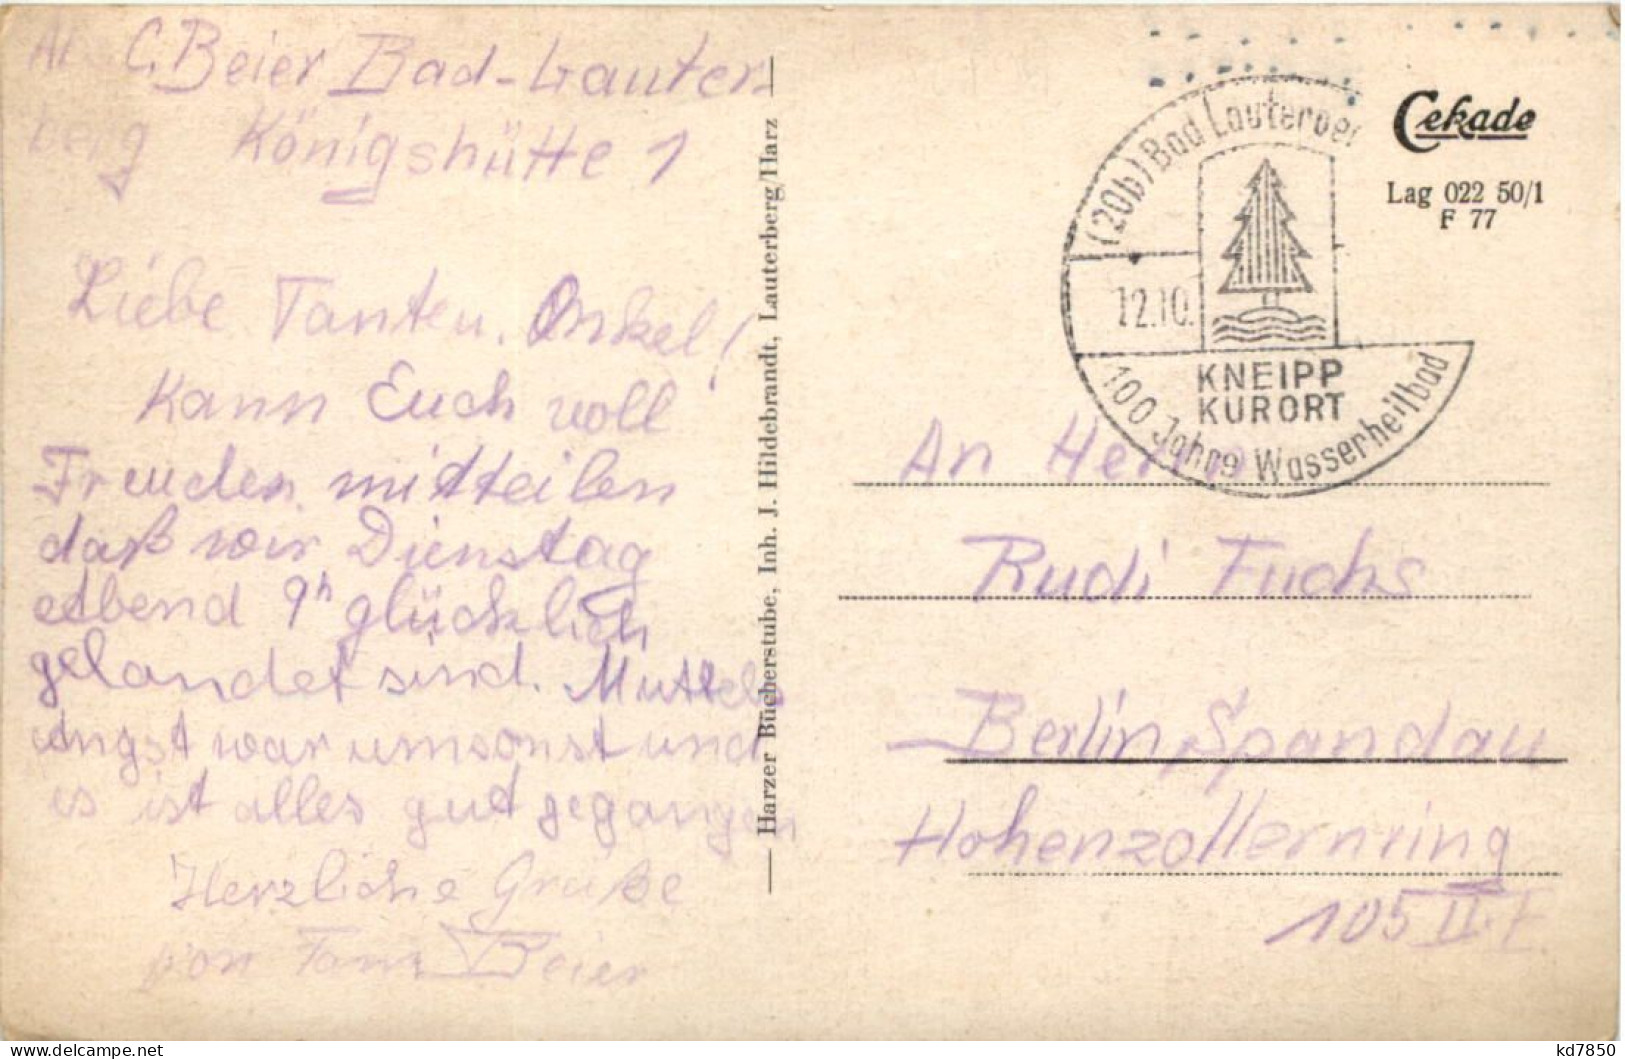 Abs. C. Beier Bad-Lauter-
berg Königshütte 1
Liebe Tante u. Onkel!
Kann Euch voll
Freuden mitteilen
daß wir Dienstag
Abend 9h glücklich
gelandet sind. Muttels
Angst war umsonst und
es ist alles gut gegangen
Herzliche Grüße
von Fam. Beier
Harzer Bücherstube, Inh. J. Hildebrandt, Lauterberg/Harz
(20b) Bad Lauterber
12.10.
KNEIPP
KURORT
100 Jahre Wasserheilbad
Cekade
Lag 022 50/1
F 77
An Herrn
Rudi Fuchs
Berlin Spandau
Hohenzollernring
105 II. r.
kd7850